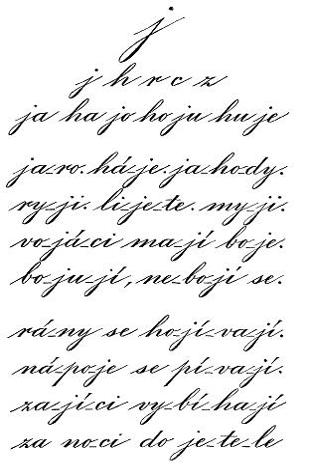 j
j h r c z
ja ha jo ho ju hu je
ja-ro. há-je. ja-ho-dy.
ry-ji. li-je-te. my-ji.
vo-já-ci ma-jí bo-je.
bo-ju-jí, ne-bo-jí se.
rá-ny se ho-jí-va-jí.
ná-po-je se pí-va-jí.
za-jí-ci vy-bí-ha-jí
za no-ci do je-te-le